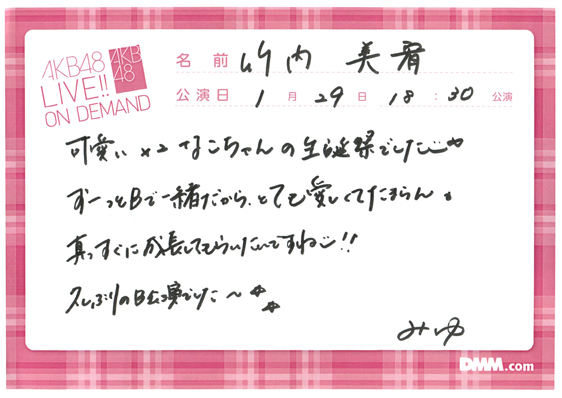 AKB48
LIVE!!
ON DEMAND
AKB
48
名前 竹内 美宥
公演日 1月29日 18:30 公演
可愛い×2 なこちゃんの生誕祭でした
ずーっとBで一緒だから、とても愛しくてたまらん
真っすぐに成長してもらいたいですね!!
久しぶりのB公演でした〜
みゆ
DMM.com